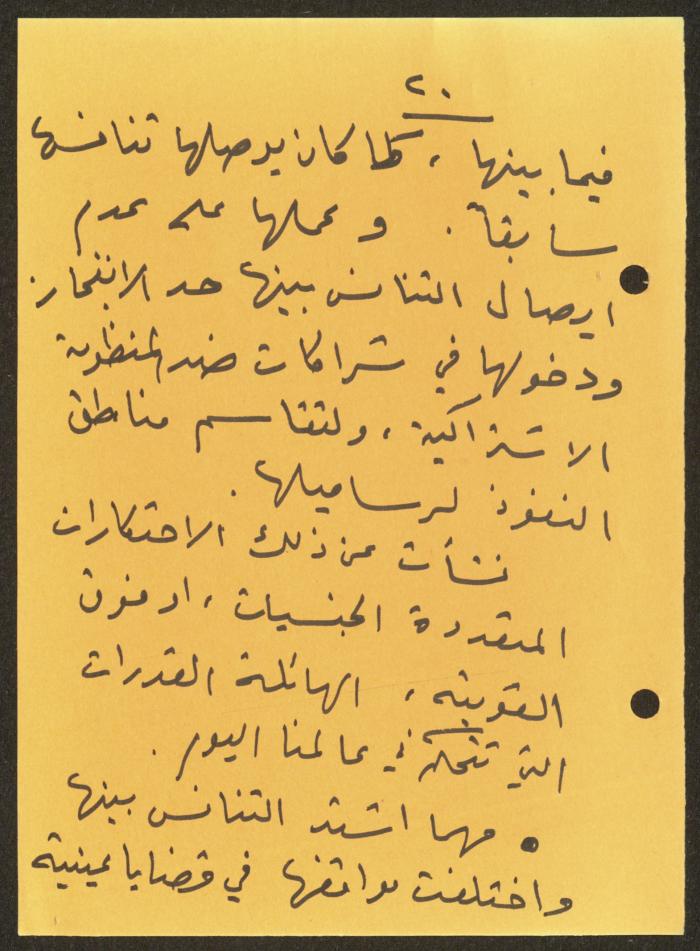 ٢٠
فيما بينها ، كما كان يوصلها تنافسها
سابقاً . وعملها على عدم
ايصال التنافس بينها حد الانفجار.
ودخولها في شراكات ضد المنظومة
الاشتراكية ، ولتقاسم مناطق
النفوذ لرساميلها .
نشأت عن ذلك الاحتكارات
المتعددة الجنسيات ، او فوق
القومية ، الهائلة القدرات
التي تتحكم في عالمنا اليوم .
• مهما اشتد التنافس بينها
واختلفت مواقفها في قضايا عينية